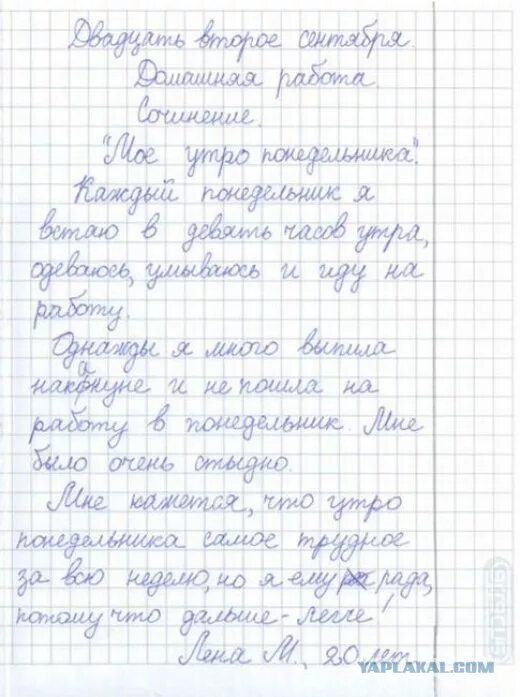 Двадцать второе сентября.
Домашняя работа.
Сочинение.
"Мое утро понедельника".
Каждый понедельник я
встаю в девять часов утра,
одеваюсь, умываюсь и иду на
работу.
Однажды я много выпила
накануне и не пошла на
работу в понедельник. Мне
было очень стыдно.
Мне кажется, что утро
понедельника самое трудное
за всю неделю, но я ему рада,
потому что дальше - легче!
Лена М., 20 лет
YAPLAKAL.COM